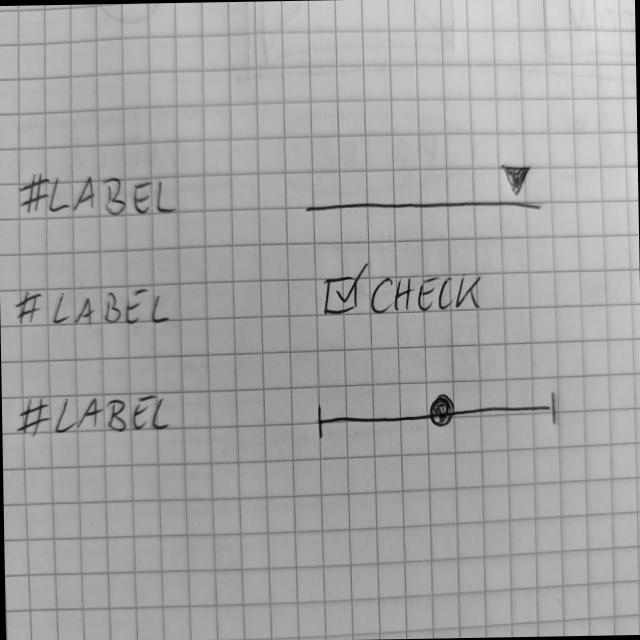 #LABEL
#LABEL CHECK
#LABEL